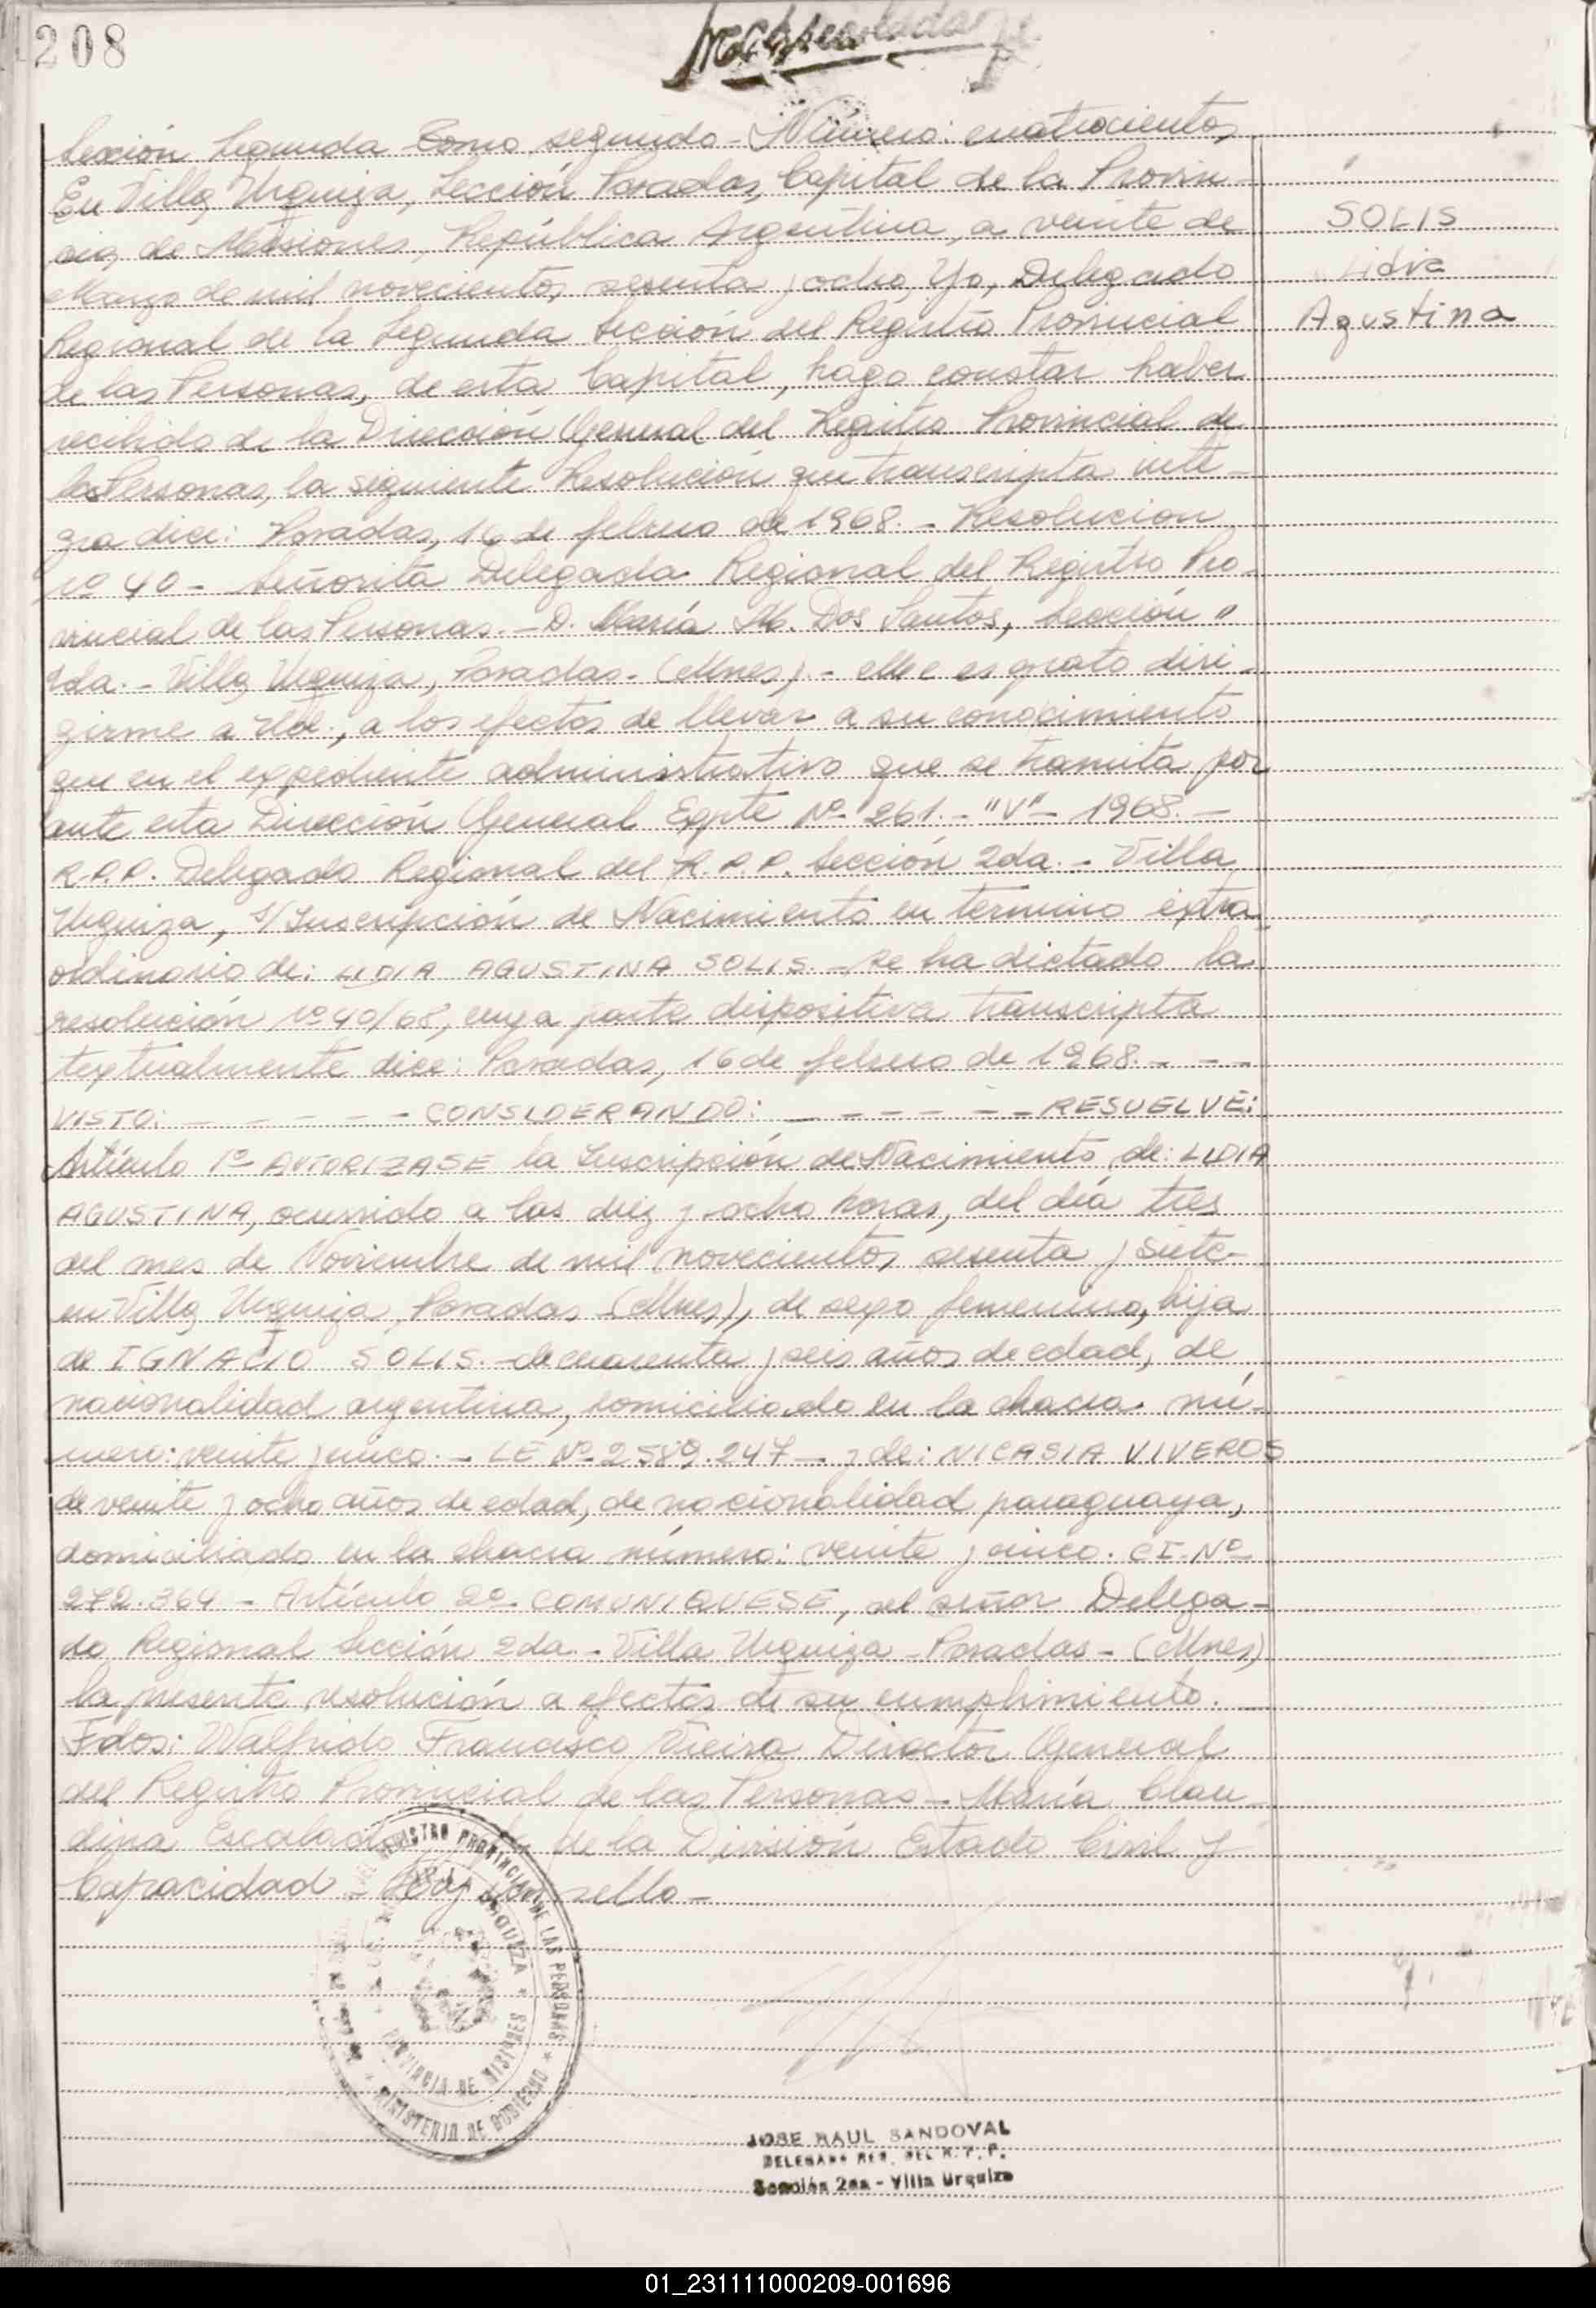 208
Sección Segunda Tomo segundo - Número: cuatrocientos
En Villa Urquiza, Sección Posadas, Capital de la Provin-
cia de Misiones, República Argentina, a veinte de
SOLIS
Marzo de mil novecientos sesenta y ocho, Yo, Delegado
Lidia
Regional de la Segunda Sección del Registro Provincial
Agustina
de las Personas, de esta Capital, hago constar haber
recibido de la Dirección General del Registro Provincial de
las Personas, la siguiente Resolución que transcripta ínte-
gra dice: Posadas, 16 de febrero de 1968. - Resolucion
nº 40 - Señorita Delegada Regional del Registro Pro-
vincial de las Personas. - D. María M. Dos Santos, Sección "
2da. - Villa Urquiza, Posadas - (Mnes). - Me es grato diri-
girme a Ud., a los efectos de llevar a su conocimiento
que en el expediente administrativo que se tramita por
ante esta Dirección General Expte Nº 261. - "V" - 1968. -
R.P.P. Delegado Regional del R.P.P. Sección 2da. - Villa
Urquiza, s/Inscripción de Nacimiento en termino extra
ordinario de: LIDIA AGUSTINA SOLIS. - Se ha dictado la
resolución nº 40/68, cuya parte dispositiva transcripta
textualmente dice: Posadas, 16 de febrero de 1968. - - -
VISTO: - - - - - CONSIDERANDO: - - - - - - RESUELVE:
Artículo 1º AUTORIZASE la Inscripción de Nacimiento de: LIDIA
AGUSTINA, ocurrido a las diez y ocho horas, del día tres
del mes de Noviembre de mil novecientos sesenta y siete-
en Villa Urquiza, Posadas - (Mnes), de sexo femenino, hija
de IGNACIO SOLIS. - de cuarenta y seis años de edad, de
nacionalidad argentina, domiciliado en la chacra nú-
mero: veinte y cinco. - LE Nº 2.589.247 - y de: NICASIA VIVEROS
de veinte y ocho años de edad, de nacionalidad paraguaya,
domiciliado en la chacra número: veinte y cinco. CI. Nº
272.364 - Artículo 2º. COMUNIQUESE, al señor Delega-
do Regional Sección 2da. - Villa Urquiza - Posadas - (Mnes)
la presente resolución a efectos de su cumplimiento.
Fdos: Walfrido Francisco Vieira Director General
del Registro Provincial de las Personas - María Clau
dina Escalada de la División Estado Civil y
Capacidad - Hay un sello -
REGISTRO PROVINCIAL DE LAS PERSONAS
URQUIZA
PROVINCIA DE MISIONES
MINISTERIO DE GOBIERNO
JOSE RAUL SANDOVAL
DELEGADO REG. DEL R. P. P.
Sección 2da - Villa Urquiza
01_231111000209-001696